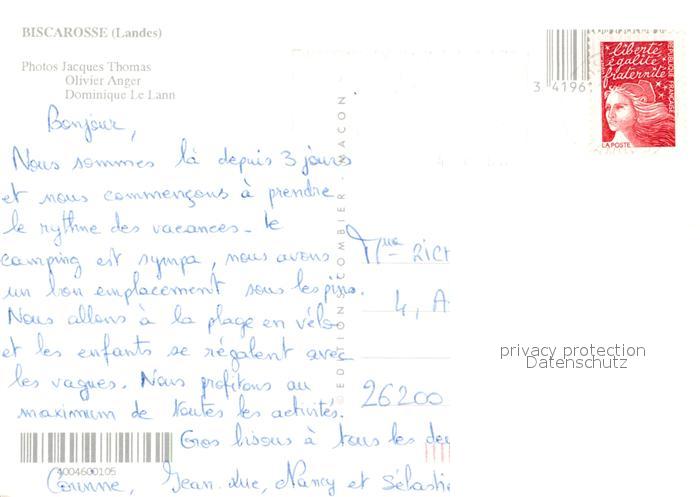 BISCAROSSE (Landes)
Photos Jacques Thomas
Olivier Anger
Dominique Le Lann
3 41961
liberté
égalité
fraternité
RÉPUBLIQUE FRANÇAISE
LA POSTE
Bonjour,
Nous sommes là depuis 3 jours
et nous commençons à prendre
le rythme des vacances - Le
camping est sympa, nous avons
un bon emplacement sous les pins.
Nous allons à la plage en vélo
et les enfants se régalent avec
les vagues. Nous profitons au
maximum de toutes les activités.
Gros bisous à tous les deu
Corinne, Jean-Luc, Nancy et Sébasti
4004600105
EDITIONS COMBIER MACON
Mme
4, A
26200
privacy protection
Datenschutz